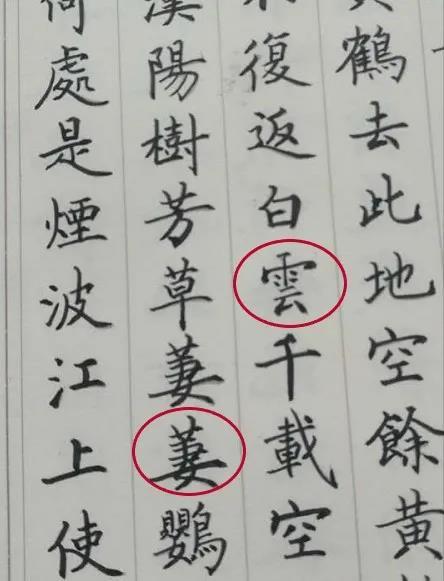 鶴去此地空餘黄
復返白雲千載空
漢陽樹芳草萋萋鸚
何處是煙波江上使